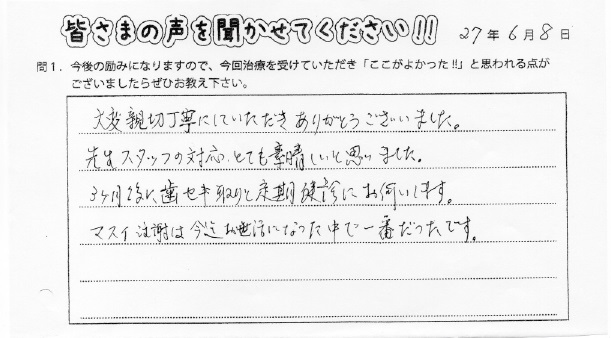 皆さまの声を聞かせてください!! 27年6月8日
問1．今後の励みになりますので、今回治療を受けていただき「ここがよかった!!」と思われる点が
ございましたらぜひお教え下さい。
大変親切丁寧にしていただきありがとうございました。
先生スタッフの対応とても素晴しいと思いました。
3ヶ月後に歯セキ取りと定期健診にお伺いします。
マスイ注謝は今迄お世話になった中で一番だったです。